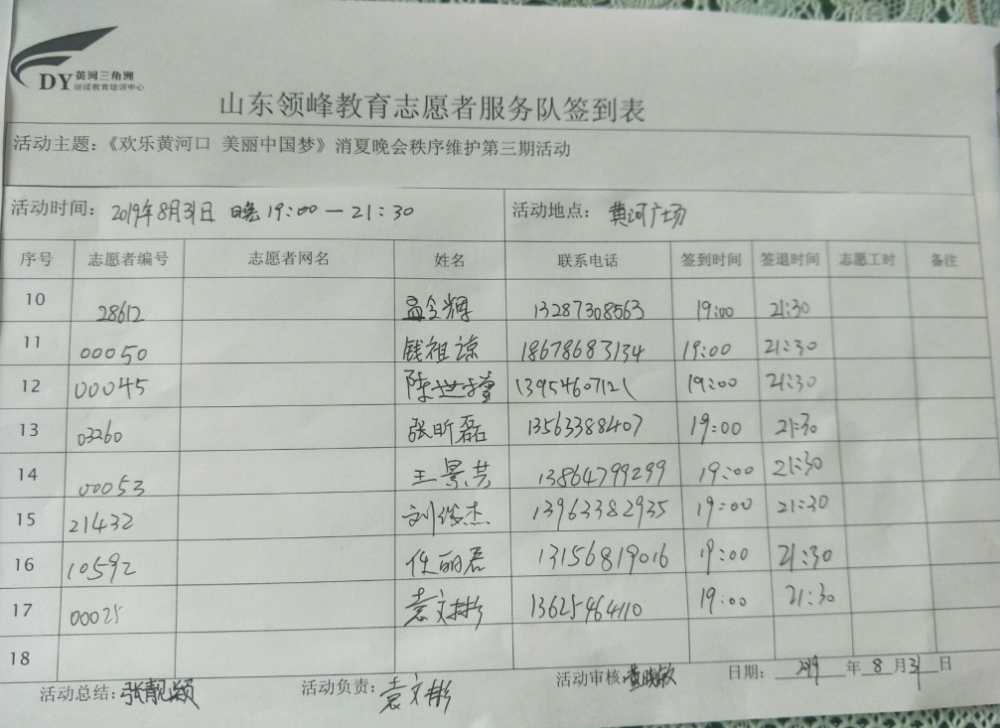 DY 黄河三角洲
继续教育培训中心
山东领峰教育志愿者服务队签到表
活动主题：《欢乐黄河口 美丽中国梦》消夏晚会秩序维护第三期活动
活动时间： 2019年8月31日 晚19:00－21:30 活动地点： 黄河广场
序号 志愿者编号 志愿者网名 姓名 联系电话 签到时间 签退时间 志愿工时 备注
10 28612 孟令辉 13287308563 19:00 21:30
11 00050 钱祖谅 18678683134 19:00 21:30
12 00045 陈世 13954607121 19:00 21:30
13 03260 张昕磊 13563388407 19:00 21:30
14 00053 王景芸 13864799299 19:00 21:30
15 21432 刘俊杰 13963382935 19:00 21:30
16 10592 任丽君 13156819016 19:00 21:30
17 00025 袁文彬 13625464110 19:00 21:30
18
活动总结：张靓颖 活动负责：袁文彬 活动审核：黄晓敏 日期： 2019 年 8 月 31 日